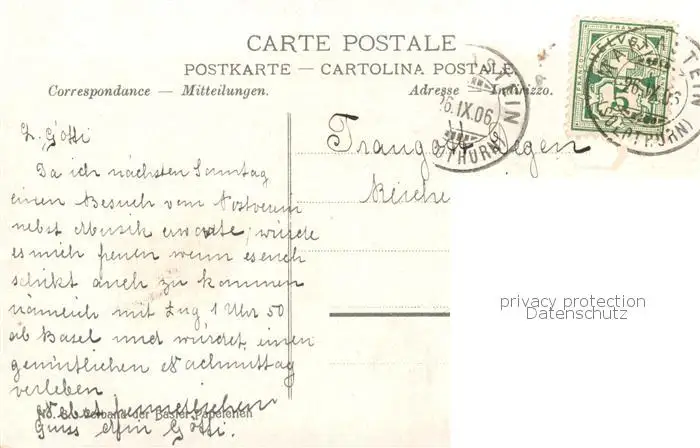 CARTE POSTALE
POSTKARTE — CARTOLINA POSTALE
Correspondance — Mitteilungen.
Adresse — Indirizzo.
26.IX.06
L. Götti
Da ich nächsten Sonntag
einen Besuch vom Postverein
nebst Musik erwarte, würde
es mich freuen wenn es euch
schikt auch zu kommen
nämlich mit Zug 1 Uhr 50
ab Basel und würdet einen
gemütlichen Nachmittag
verleben
Nebst freundlichem
Gruss Götti.
Verband der Basler Papeterien
Traugott
Riehe
privacy protection
Datenschutz